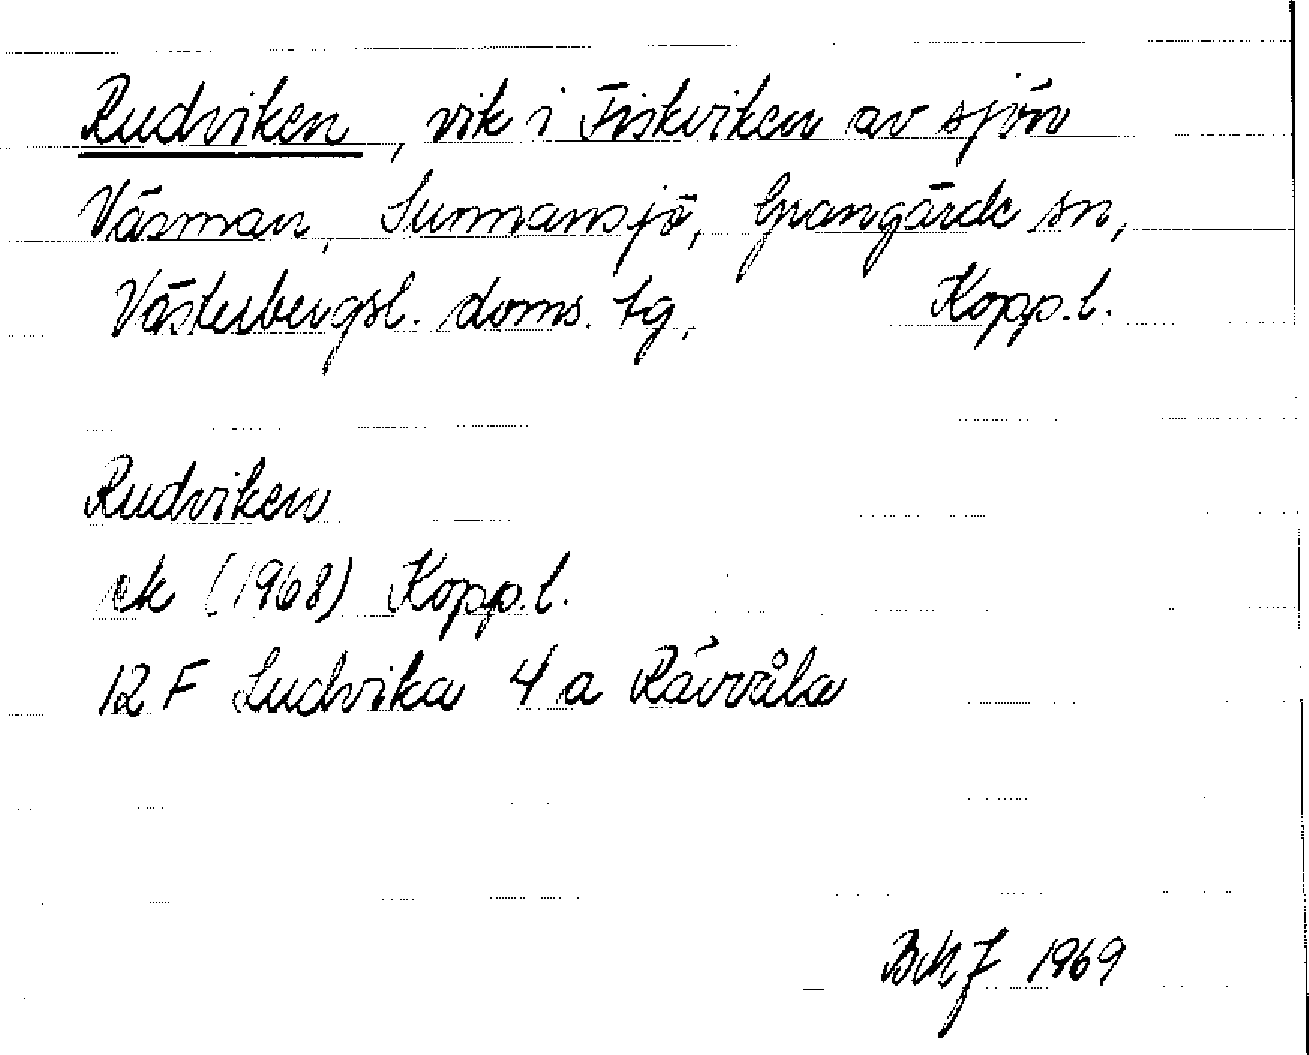 Rudviken, vik i Fiskviken av sjön
Väsman, Sunnansjö, Grangärde sn,
Västerbergsl. doms. tg, Kopp. l.
Rudviken
ek (1968) Kopp. l.
12 F Ludvika 4 a Rävvåla
BMJ 1969